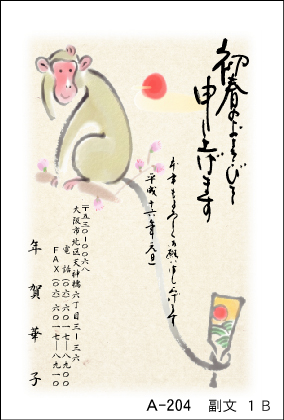 初春のよろこびを
申し上げます
本年もよろしくお願い申し上げます
平成十六年元旦
〒五三〇-〇〇六八
大阪市北区天神橋六丁目三-三六
電話(〇六)六〇一七-八九〇〇
FAX(〇六)六〇一七-八九〇一
年賀華子
A-204 副文 1B